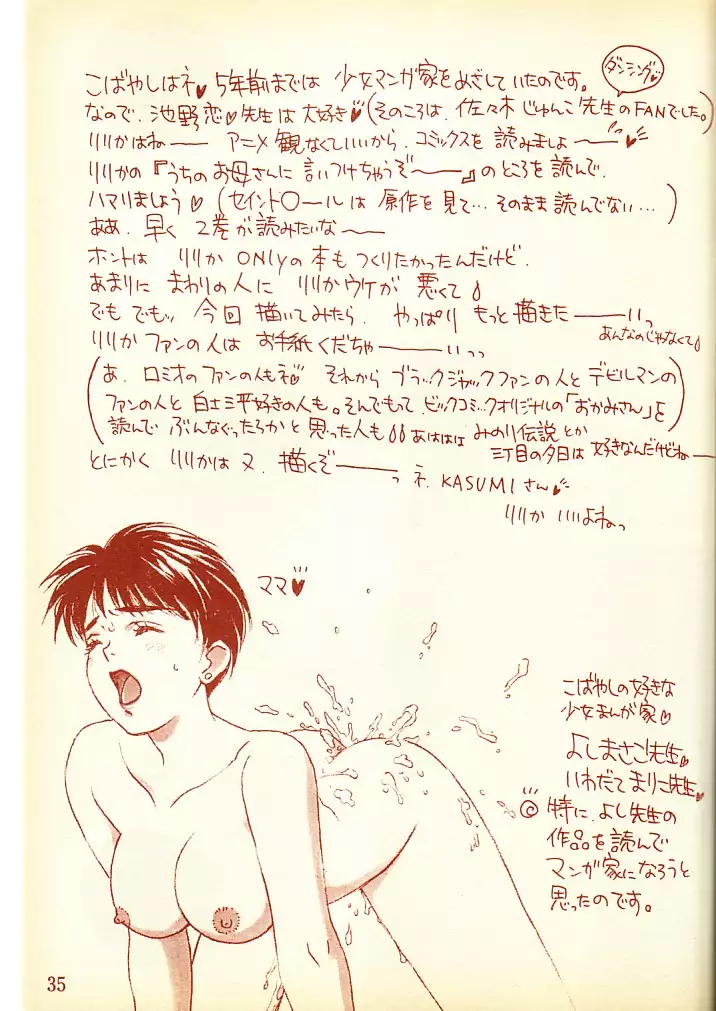 こばやしはネ♥ 5年前までは 少女マンガ家をめざしていたのです。
ダンシング♥
なので、池野恋♡先生は大好き♥(そのころは、佐々木じゅんこ先生のFANでした。)
リリかはねーー アニメ観なくていいから、コミックスを読みましょーー♥
リリかの『うちのお母さんに言いつけちゃうぞ〜ーー』のところを読んで、
ハマりましょう♡(セイント○ールは原作を見て…そのまま読んでない…)
ああ、早く 2巻が読みたいなーー
ホントは リリか ONLyの本もつくりたかったんだけど、
あまりに まわりの人に リリかウケが 悪くて
でも でもッ 今回 描いてみたら、やっぱり もっと描きたーーいっ
あんなのじゃなくて
リリか ファンの人は お手紙くだちゃーーいっっ
(あ、ロミオのファンの人もネ♡ それから ブラックジャックファンの人と デビルマンの
ファンの人と 白土三平好きの人も。そんでもって ビックコミックオリジナルの「おかみさん」を
読んで ぶんなぐったろかと思った人も あははは みのり伝説とか
三丁目の夕日は 好きなんだけどねーー)
とにかく リリかは 又、描くぞーーっ ネ、KASUMIさん♥
リリか いいよねっ
ママ♥
こばやしの好きな
少女まんが家♡
よしまさこ先生♥
いわだてまりこ先生♥
◎特に、よし先生の
作品を読んで
マンガ家になろうと
思ったのです。
35